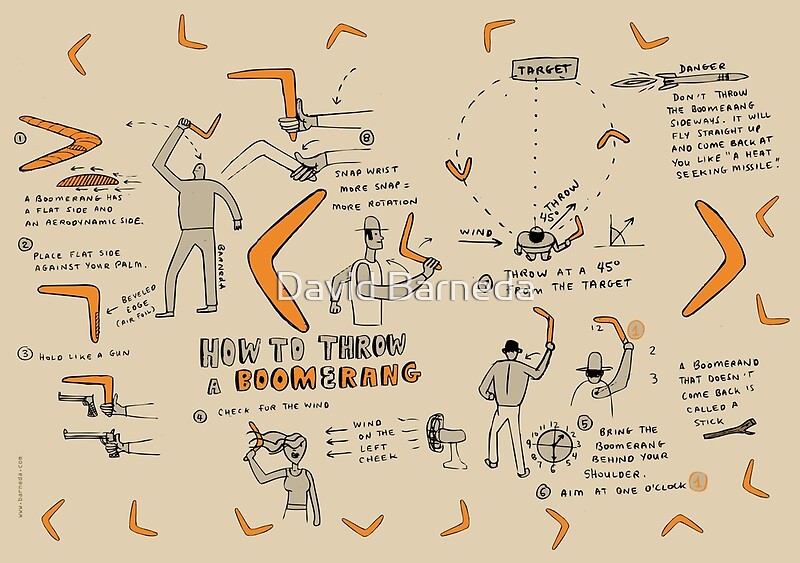 1
A BOOMERANG HAS
A FLAT SIDE AND
AN AERODYNAMIC SIDE.
2
PLACE FLAT SIDE
AGAINST YOUR PALM.
BEVELED
EDGE
(AIR FOIL)
3 HOLD LIKE A GUN
BARNEDA
8
SNAP WRIST
MORE SNAP =
MORE ROTATION
HOW TO THROW
A BOOMERANG
4 CHECK FOR THE WIND
WIND
ON THE
LEFT
CHEEK
TARGET
THROW
45°
WIND
THROW AT A 45°
FROM THE TARGET
David Barneda
DANGER
DON'T THROW
THE BOOMERANG
SIDEWAYS. IT WILL
FLY STRAIGHT UP
AND COME BACK AT
YOU LIKE "A HEAT
SEEKING MISSILE".
12 1
2
3
5 BRING THE
BOOMERANG
BEHIND YOUR
SHOULDER.
12 1 2 3 4 5 6 7 8 9 10 11
6 AIM AT ONE O'CLOCK 1
A BOOMERAND
THAT DOESN'T
COME BACK IS
CALLED A
STICK
www.barneda.com